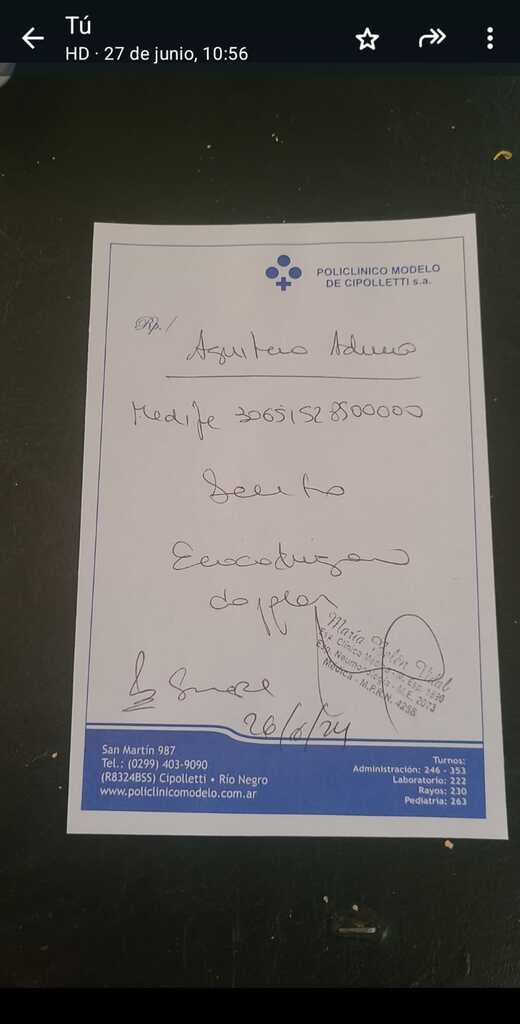 Tú
HD · 27 de junio, 10:56
POLICLINICO MODELO
DE CIPOLLETTI s.a.
Rp./
Medife 30651528500000
doppler
María Belén
Esp. Clínica
Esp. Neumología - M.E. 2073
Médica - M.P.R.N. 4258
26/6/24
San Martín 987
Tel.: (0299) 403-9090
(R8324BSS) Cipolletti • Río Negro
www.policlinicomodelo.com.ar
Turnos:
Administración: 246 - 353
Laboratorio: 222
Rayos: 230
Pediatría: 263